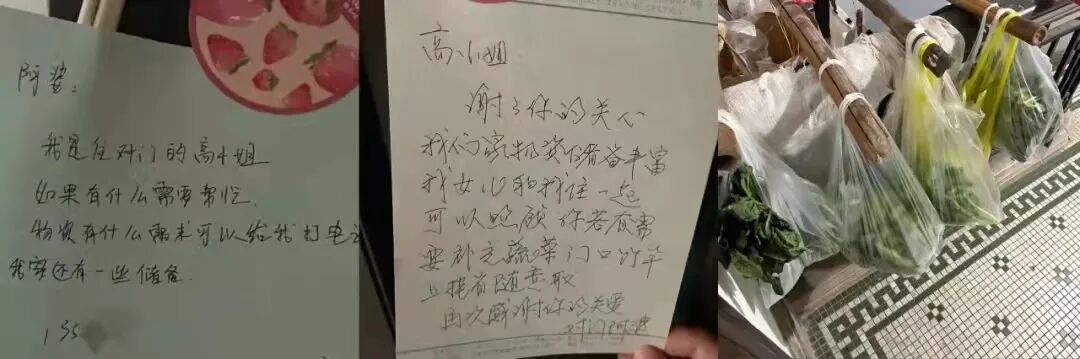 阿婆：
我是住对门的高小姐
如果有什么需要帮忙
物资有什么需求可以给我打电
我家还有一些储备.
135
高小姐
谢了你的关心
我们家物资储备丰富
我女儿和我住一起
可以照顾 你若有需
要补充蔬菜门口竹竿
上挂着随意取
再次感谢你的关爱
对门阿婆